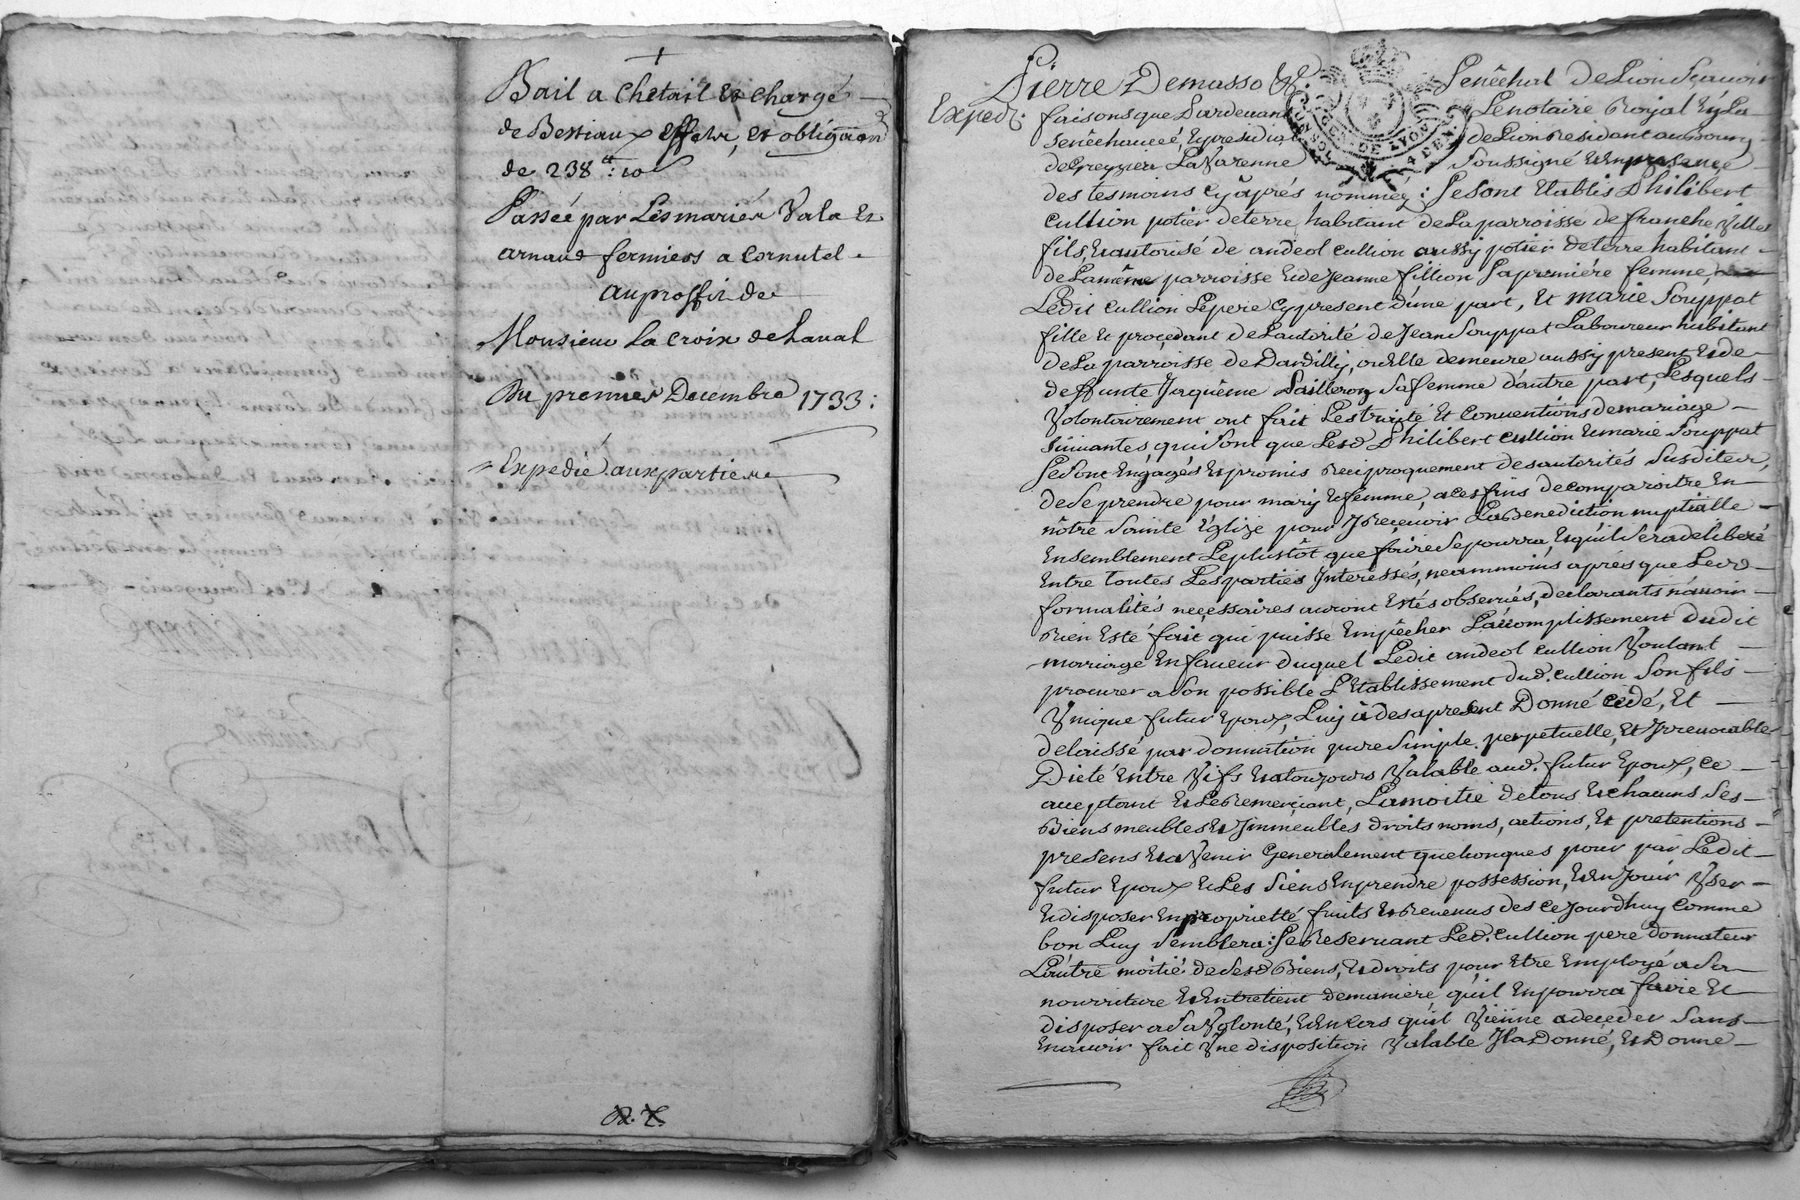 Bail a chetail et charge
de Bestiaux effets, et obligation
de 238tt : 10s
Passée par Les mariés Vala et
arnaud fermiers a cornutel
au proffit de
Monsieur La croix de Laval
Du premier Decembre 1733 :
Expedié aux parties
Pierre Demasso
Senêchal de Lion Scavoir
Exped:
faisons que Pardevant
Le notaire Royal En La
Senêchaucée, Et presidial
de Lion Residant au bourg
de Greyzieu La Varenne
soussigné Et En presence
des tesmoins cy âprés nommez : se sont Etablis Philibert
Cullion potier de terre habitant de La parroisse de franche Ville
fils, Et autorisé de andeol cullion aussy potier de terre habitant
de La même parroisse Et de Jeanne fillion sa premiére femme,
Ledit cullion Le pere cy present d'une part, Et marie Souppat
fille Et procedant de L'autorité de Jean Souppat Laboureur habitant
de La parroisse de Dardilly, ou Elle demeure aussy present Et de
deffunte Jaquême sa femme d'autre part, Lesquels
Volontairement ont fait Les traité Et conventions de mariage
suivantes, qui sont que Lesd Philibert cullion Et marie Souppat
se sont Engagés Et promis Reciproquement des autorités susdites,
de se prendre pour mary Et femme, a ces fins de comparoitre En
nôtre sainte Eglize pour y Recevoir La Benediction nuptialle
Ensemblement Le plustôt que faire se pourra, Et qu'il sera deliberé
Entre toutes Les parties Interessés, neammoins aprés que Les
formalités necessaires auront Estés observés, declarants n'avoir
Rien Esté fait qui puisse Empêcher L'accomplissement dudit
mariage En faveur duquel Ledit andeol cullion Voulant
procurer a son possible L'Etablissement dud. cullion son fils
Vnique futur Epoux, Luy à des apresent Donné cédé, Et
delaissé par donnation pure simple perpetuelle, Et Irrevocable
Ditte Entre Vifs Et a toujours Valable aud. futur Epoux, ce
acceptant Et Le Remerçiant, La moitié de tous Et chacuns ses
Biens meubles Et Immeubles droits noms, actions, Et pretentions
presens Et a Venir Generalement quelconques pour par Ledit
futur Epoux Et Les siens En prendre possession, Et En Jouir Vser
Et disposer En proprietté fruits Et Revenus des ce Jourdhuy comme
bon Luy semblera : se Reservant Led. cullion pere donnateur
L'autre môitié de sesd Biens, Et droits pour Etre Employé a sa
nourriture Et Entretient de maniere qu'il En pourra faire Et
disposer a sa Volonté, Et En cas qu'il Vienne a deceder sans
En avoir fait Vne disposition Valable Il a Donné, Et Donne